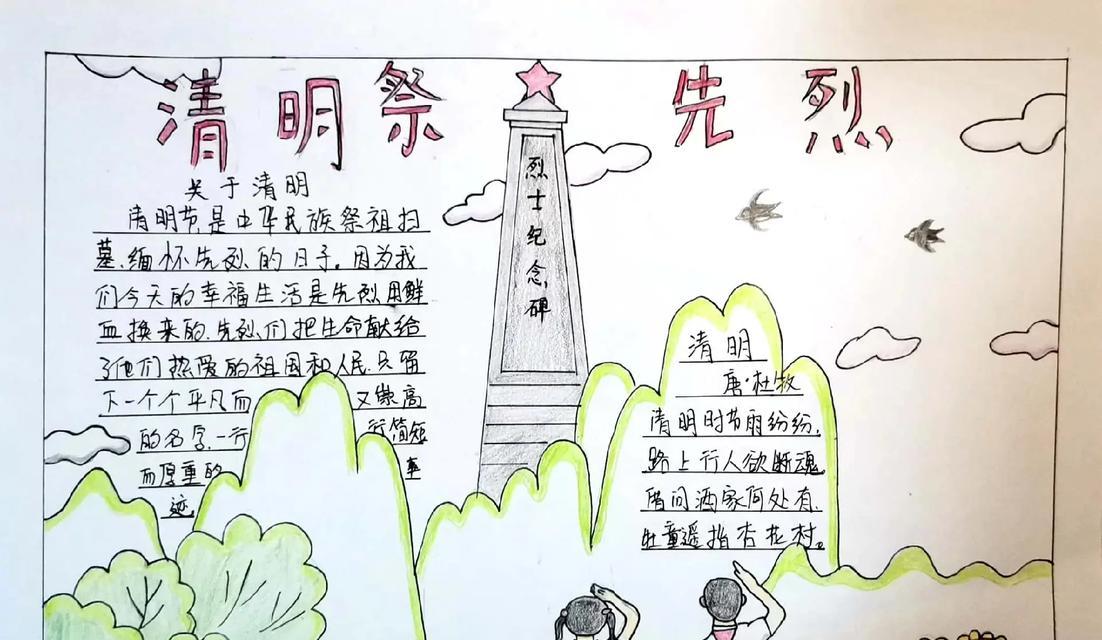 清明祭先烈
烈士纪念碑
关于清明
清明节是中华民族祭祖扫
墓、缅怀先烈的日子。因为我
们今天的幸福生活是先烈用鲜
血换来的.先烈们把生命献给
了他们热爱的祖国和人民.只留
下一个个平凡而又崇高
的名字.一行行简短
而厚重的事
迹.
清明
唐·杜牧
清明时节雨纷纷,
路上行人欲断魂
借问酒家何处有.
牧童遥指杏花村。